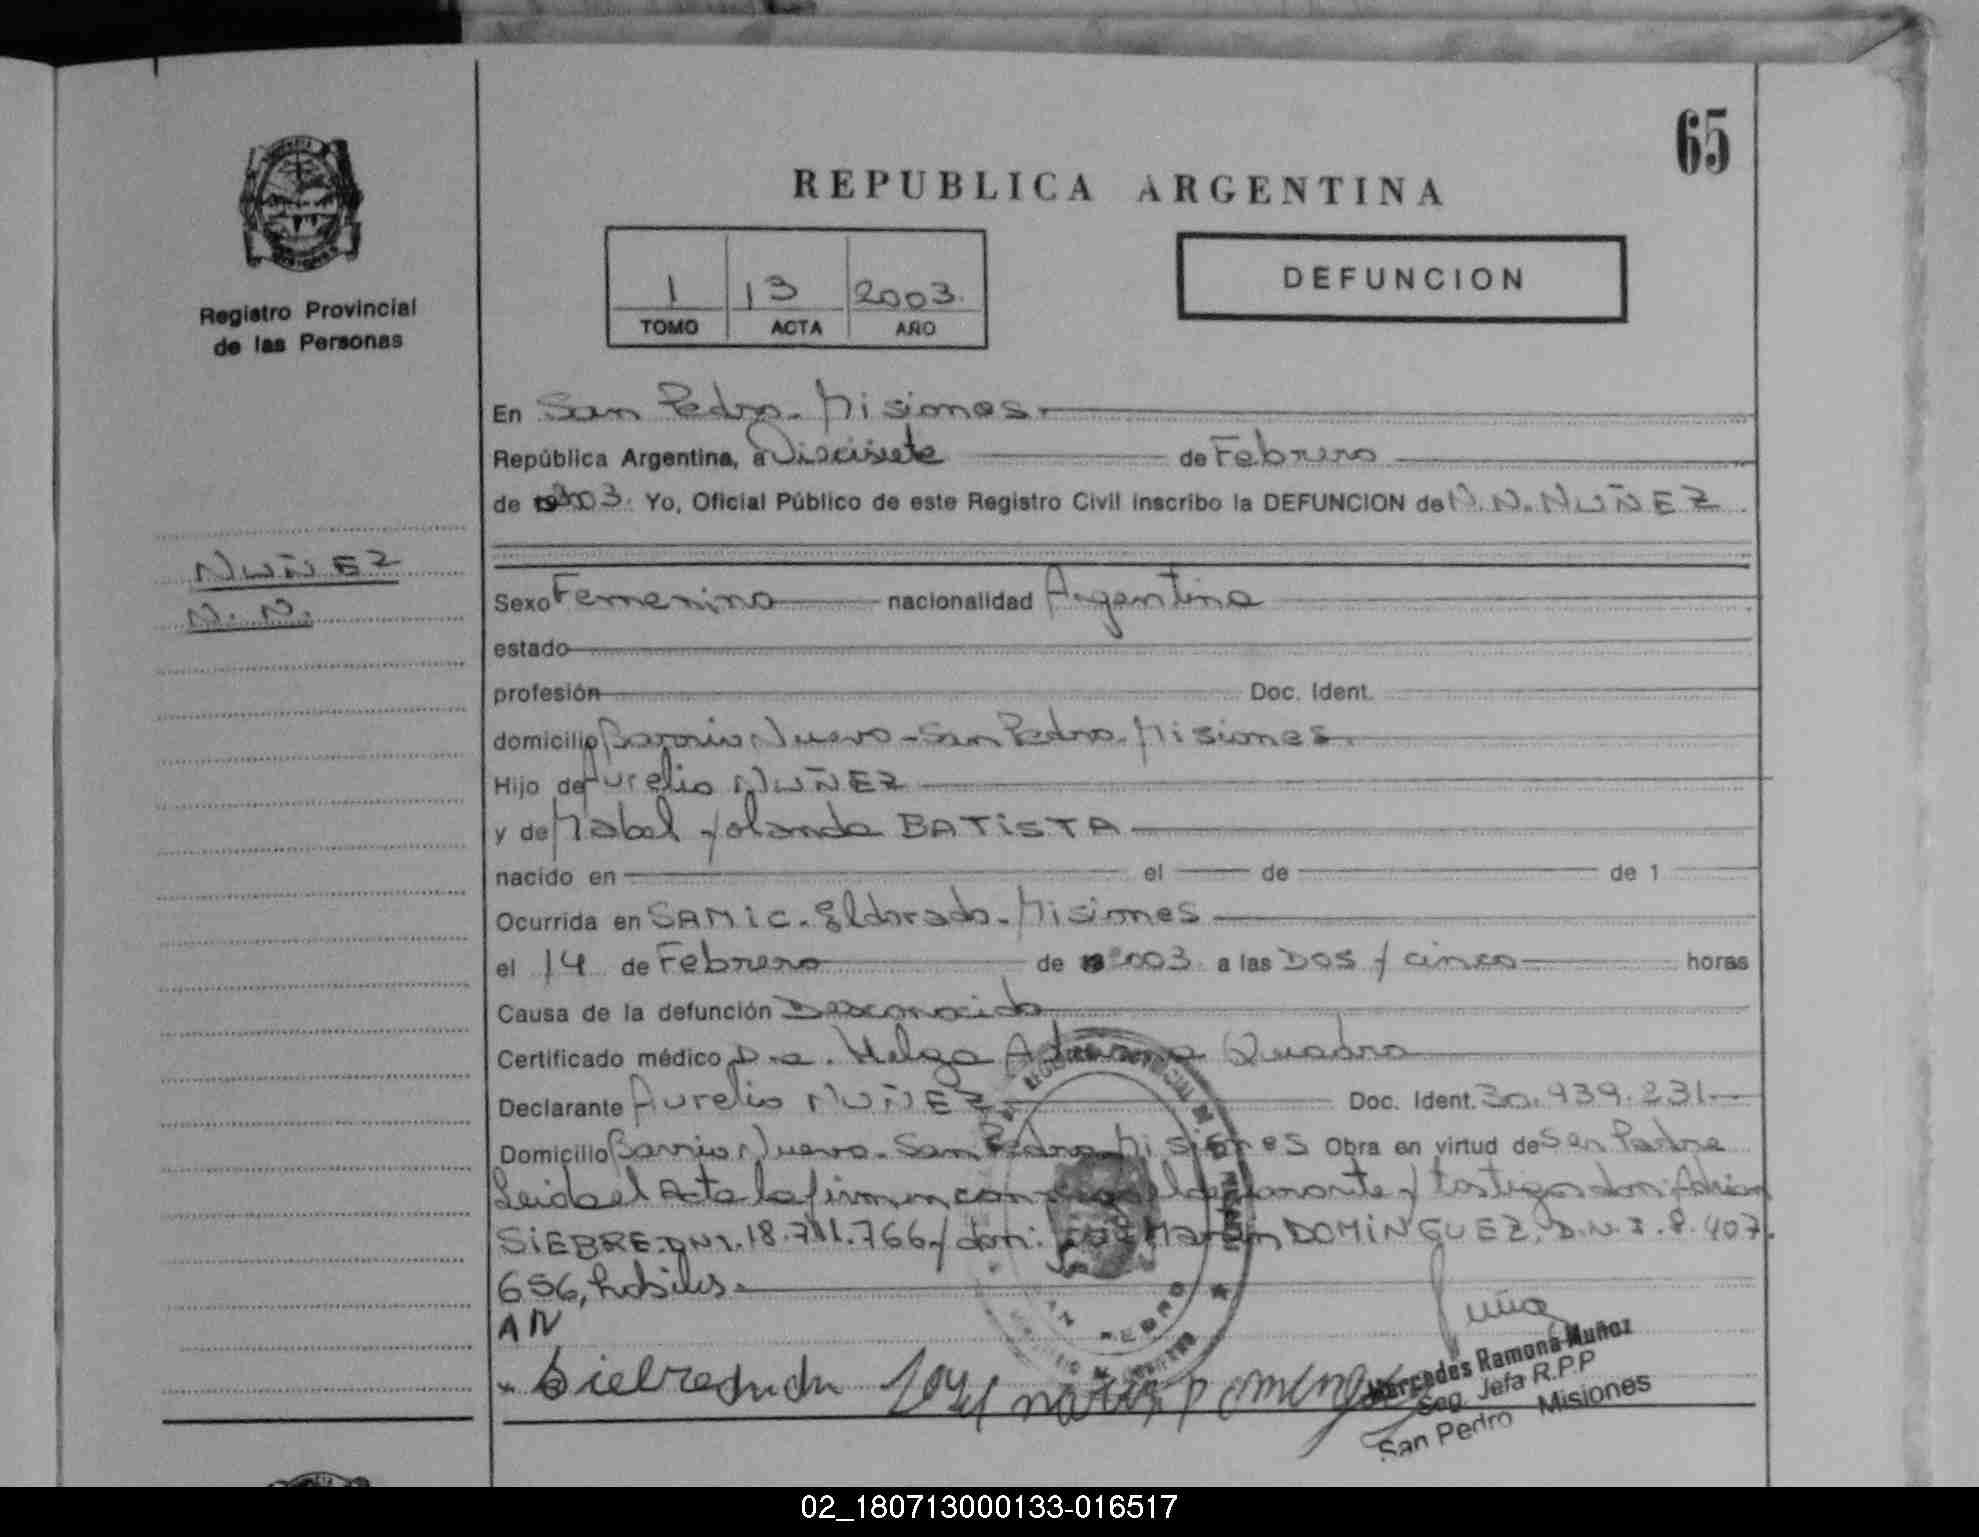 65
REPUBLICA ARGENTINA
Registro Provincial
de las Personas
1 13 2003.
TOMO ACTA AÑO
DEFUNCION
En San Pedro - Misiones.
República Argentina, a Diecisiete de Febrero
de 2003. Yo, Oficial Público de este Registro Civil inscribo la DEFUNCION de N.N. NUÑEZ
NUÑEZ
N. N.
Sexo Femenino nacionalidad Argentina
estado
profesión Doc. Ident.
domicilio Barrio Nuevo - San Pedro - Misiones.
Hijo de Aurelio NUÑEZ
y de Mabel Yolanda BATISTA
nacido en el de de 1
Ocurrida en SAMIC - Eldorado - Misiones
el 14 de Febrero de 2003 a las Dos y cinco horas
Causa de la defunción Desconocida
Certificado médico Dra. Helga Adriana Quadro
Declarante Aurelio NUÑEZ Doc. Ident. 30.939.231
Domicilio Barrio Nuevo - San Pedro - Misiones Obra en virtud de Ser Padre
Leida el Acta la firman conmigo el declarante y testigos don: Adrian
SIEBRE DNI. 18.711.766 y don: José Martin DOMINGUEZ, D.N.I. 8.407.
656, habiles.
AN
Mercedes Ramona Muñoz
Seg. Jefa R.P.P
San Pedro Misiones
02_180713000133-016517